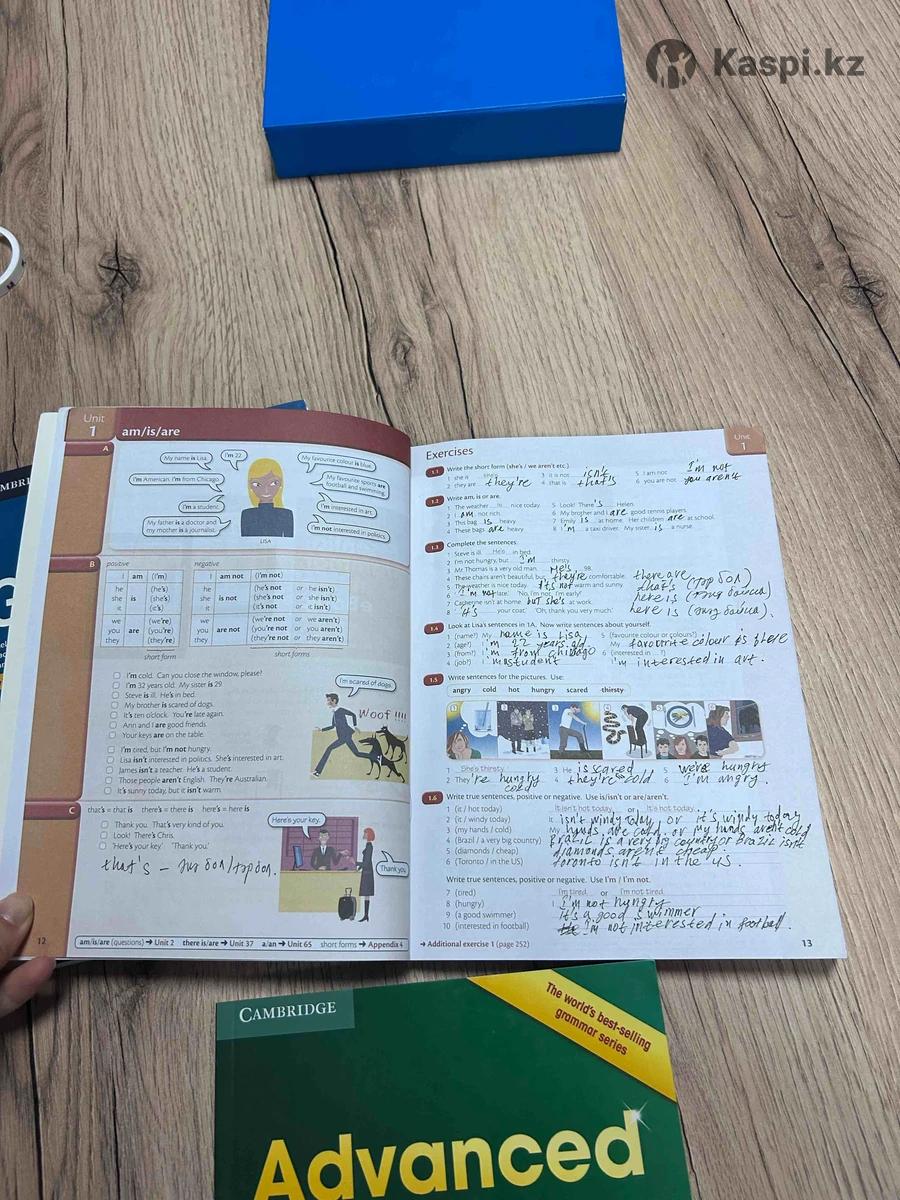 Kaspi.kz
Unit
1
am/is/are
A
My name is Lisa.
I'm 22.
I'm American. I'm from Chicago.
I'm a student.
My father is a doctor and
my mother is a journalist.
My favourite colour is blue.
My favourite sports are
football and swimming.
I'm interested in art.
I'm not interested in politics.
LISA
B
positive
I am (I'm)
he (he's)
she is (she's)
it (it's)
we (we're)
you are (you're)
they (they're)
short form
negative
I am not (I'm not)
he (he's not or he isn't)
she is not (she's not or she isn't)
it (it's not or it isn't)
we (we're not or we aren't)
you are not (you're not or you aren't)
they (they're not or they aren't)
short forms
I'm cold. Can you close the window, please?
I'm 32 years old. My sister is 29.
Steve is ill. He's in bed.
My brother is scared of dogs.
It's ten o'clock. You're late again.
Ann and I are good friends.
Your keys are on the table.
I'm scared of dogs.
Woof !!!!
I'm tired, but I'm not hungry.
Lisa isn't interested in politics. She's interested in art.
James isn't a teacher. He's a student.
Those people aren't English. They're Australian.
It's sunny today, but it isn't warm.
C
that's = that is there's = there is here's = here is
Thank you. That's very kind of you.
Look! There's Chris.
'Here's your key.' 'Thank you.'
Here's your key.
Thank you
12
am/is/are (questions) → Unit 2 there is/are → Unit 37 a/an → Unit 65 short forms → Appendix 4
Exercises
Unit
1
1.1 Write the short form (she's / we aren't etc.).
1 she is she's 3 it is not isn't 5 I am not I'm not
2 they are they're 4 that is that's 6 you are not you aren't
1.2 Write am, is or are.
1 The weather is nice today. 5 Look! There's Helen.
2 I am not rich. 6 My brother and I are good tennis players.
3 This bag is heavy. 7 Emily is at home. Her children are at school.
4 These bags are heavy. 8 I'm a taxi driver. My sister is a nurse.
1.3 Complete the sentences.
1 Steve is ill. He's in bed.
2 I'm not hungry, but I'm thirsty.
3 Mr Thomas is a very old man. He's 98.
4 These chairs aren't beautiful, but they're comfortable.
5 The weather is nice today. It's not warm and sunny.
6 I'm not late. 'No, I'm not. I'm early!'
7 Catherine isn't at home. but she's at work.
8 your coat. 'Oh, thank you very much.'
there are
that's
here is
here is
1.4 Look at Lisa's sentences in 1A. Now write sentences about yourself.
1 (name?) My name is Lisa 5 (favourite colour or colours?)
2 (age?) I'm 22 years old. My favourite colour is
3 (from?) I'm from Chicago 6 (interested in ... ?)
4 (job?) I'm student I'm interested in art.
1.5 Write sentences for the pictures. Use:
angry cold hot hungry scared thirsty
1 She's thirsty. 3 He is scared 5 were hungry
2 They're hungry cold 4 they're cold 6 I'm angry.
1.6 Write true sentences, positive or negative. Use is/isn't or are/aren't.
1 (it / hot today) It isn't hot today. or It's hot today.
2 (it / windy today) It isn't windy today, or it's windy today
3 (my hands / cold) My hands are cold. or my hands aren't cold
4 (Brazil / a very big country) Brazil is a very big country or Brazil isn't
5 (diamonds / cheap) diamonds aren't cheap
6 (Toronto / in the US) Toronto isn't in the US
Write true sentences, positive or negative. Use I'm / I'm not.
7 (tired) I'm tired. or I'm not tired.
8 (hungry) I I'm not hungry
9 (a good swimmer) it's a good swimmer
10 (interested in football) I'm not interested in football.
→ Additional exercise 1 (page 252)
13
CAMBRIDGE
The world's best-selling
grammar series
Advanced